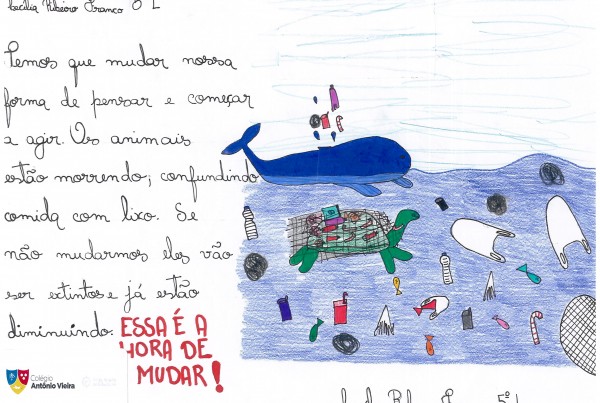 Cecília Ribeiro Franco
Temos que mudar nossa
forma de pensar e começar
a agir. Os animais
estão morrendo; confundindo
comida com lixo. Se
não mudarmos eles vão
ser extintos e já estão
diminuindo. ESSA É A
HORA DE
MUDAR!
Colégio
Antônio Vieira